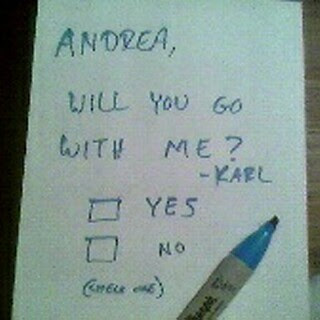 ANDREA,
WILL YOU GO
WITH ME?
-KARL
YES
NO
(CHECK ONE)
Sharpie